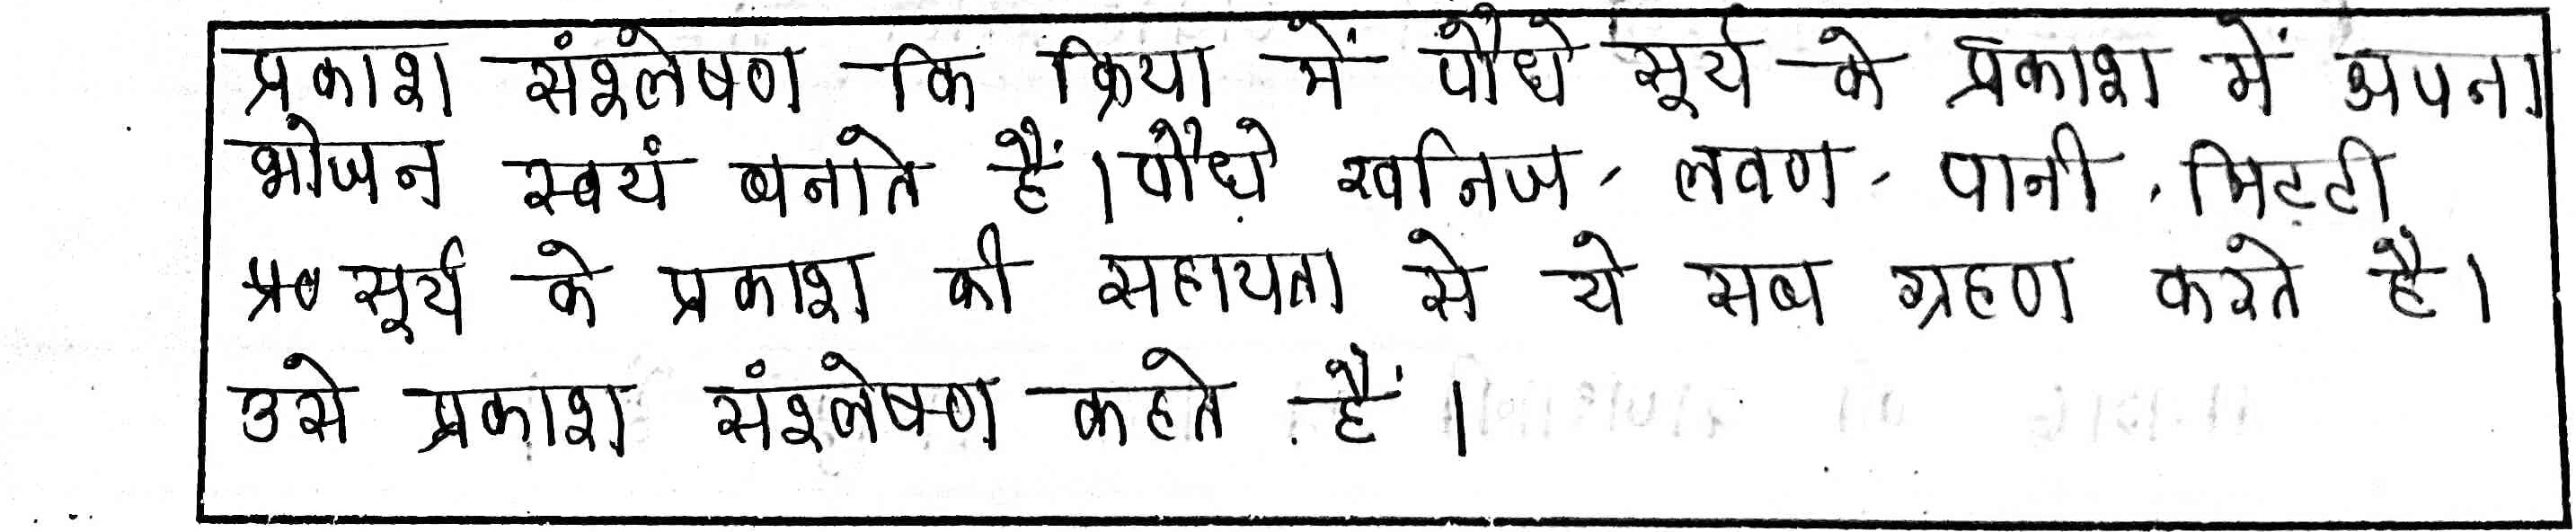 प्रकाश संश्लेषण कि क्रिया में पौधे सूर्य के प्रकाश में अपना
भोजन स्वयं बनाते हैं। पौधे खनिज, लवण, पानी, मिट्टी
सूर्य के प्रकाश की सहायता से ये सब ग्रहण करते है।
उसे प्रकाश संश्लेषण कहते हैं।